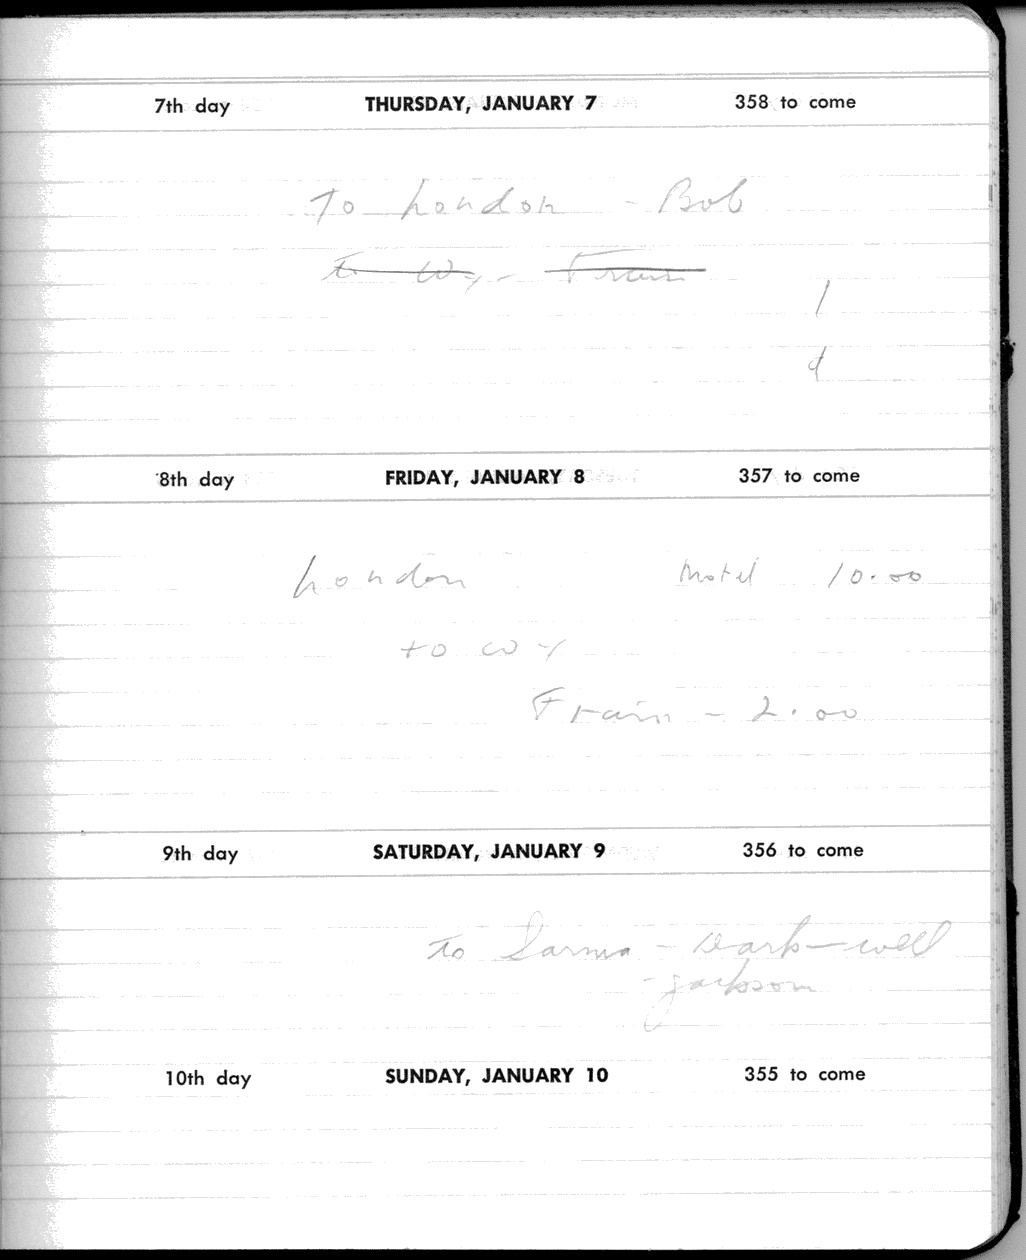 7th day THURSDAY, JANUARY 7 358 to come
To London - Bob
to Wy - Train
8th day FRIDAY, JANUARY 8 357 to come
London Motel 10.00
to Wy
Train - 2.00
9th day SATURDAY, JANUARY 9 356 to come
to Sarnia - - well
- Jackson
10th day SUNDAY, JANUARY 10 355 to come